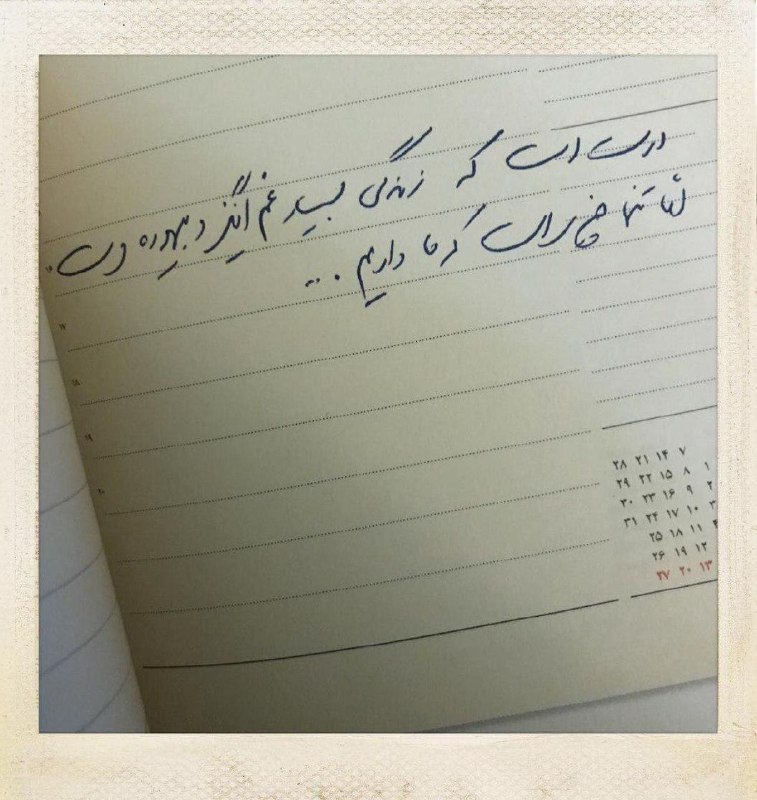 درست است که زندگی بسیار غم انگیز و بیهوده است.
اما تنها چیزی است که ما داریم ...
۱۷
۱۸
۱۹
۲۰
۷ ۱۴ ۲۱ ۲۸
۱ ۸ ۱۵ ۲۲ ۲۹
۲ ۹ ۱۶ ۲۳ ۳۰
۳ ۱۰ ۱۷ ۲۴ ۳۱
۴ ۱۱ ۱۸ ۲۵
۱۲ ۱۹ ۲۶
۱۳ ۲۰ ۲۷